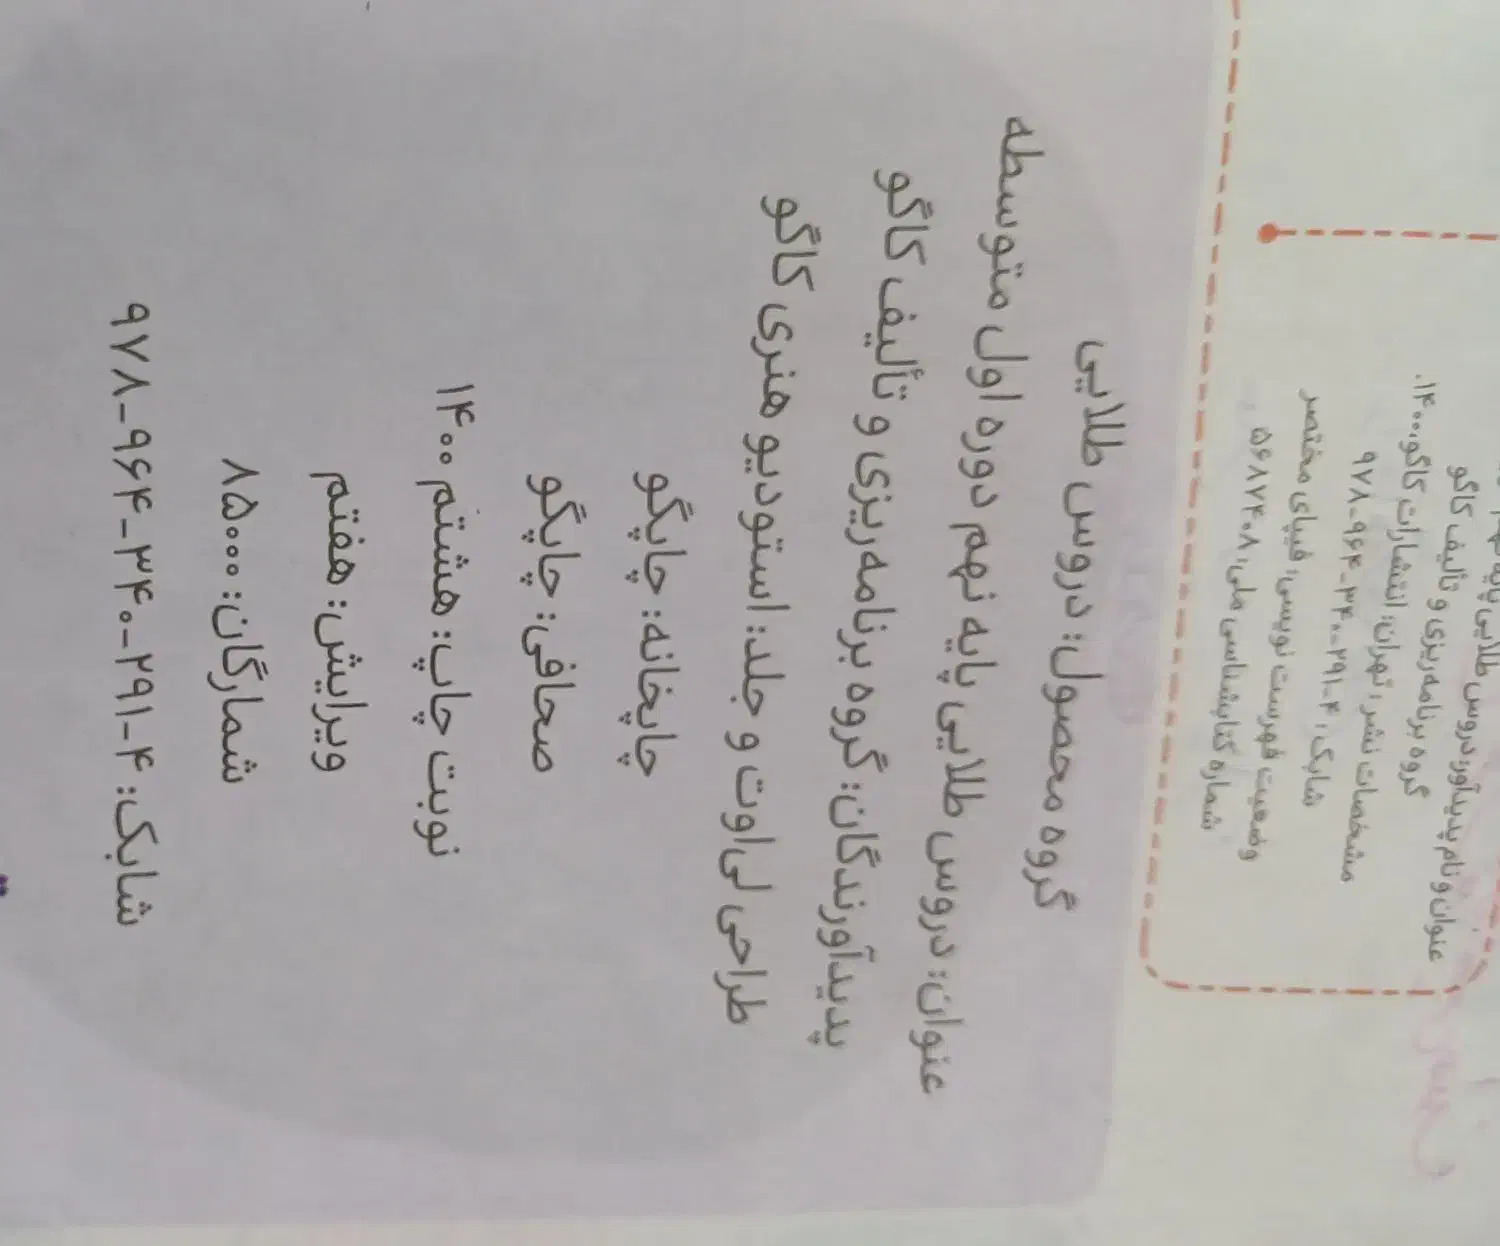 عنوان و نام پدیدآور: دروس طلایی پایه
گروه برنامه‌ریزی و تألیف کاگو
مشخصات نشر: تهران: انتشارات کاگو، ۱۴۰۰.
شابک: ۴-۲۹۱-۳۴۰-۹۶۴-۹۷۸
وضعیت فهرست نویسی: فیپای مختصر
شماره کتابشناسی ملی: ۵۶۸۷۴۰۸
گروه محصول: دروس طلایی
عنوان: دروس طلایی پایه نهم دوره اول متوسطه
پدیدآورندگان: گروه برنامه‌ریزی و تألیف کاگو
طراحی لی‌اوت و جلد: استودیو هنری کاگو
چاپخانه: چاپگو
صحافی: چاپگو
نوبت چاپ: هشتم ۱۴۰۰
ویرایش: هفتم
شمارگان: ۸۵۰۰۰
شابک: ۴-۲۹۱-۳۴۰-۹۶۴-۹۷۸